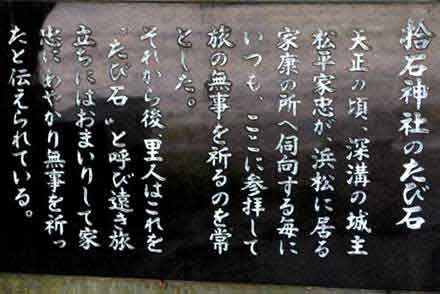 拾石神社のたび石
天正の頃、深溝の城主
松平家忠が、浜松に居る
家康の所へ伺向する毎に
いつも、ここに参拝して
旅の無事を祈るのを常
とした。
それから後、里人はこれを
“たび石”と呼び遠き旅
立ちにはおまいりして家
忠にあやかり無事を祈っ
たと伝えられている。